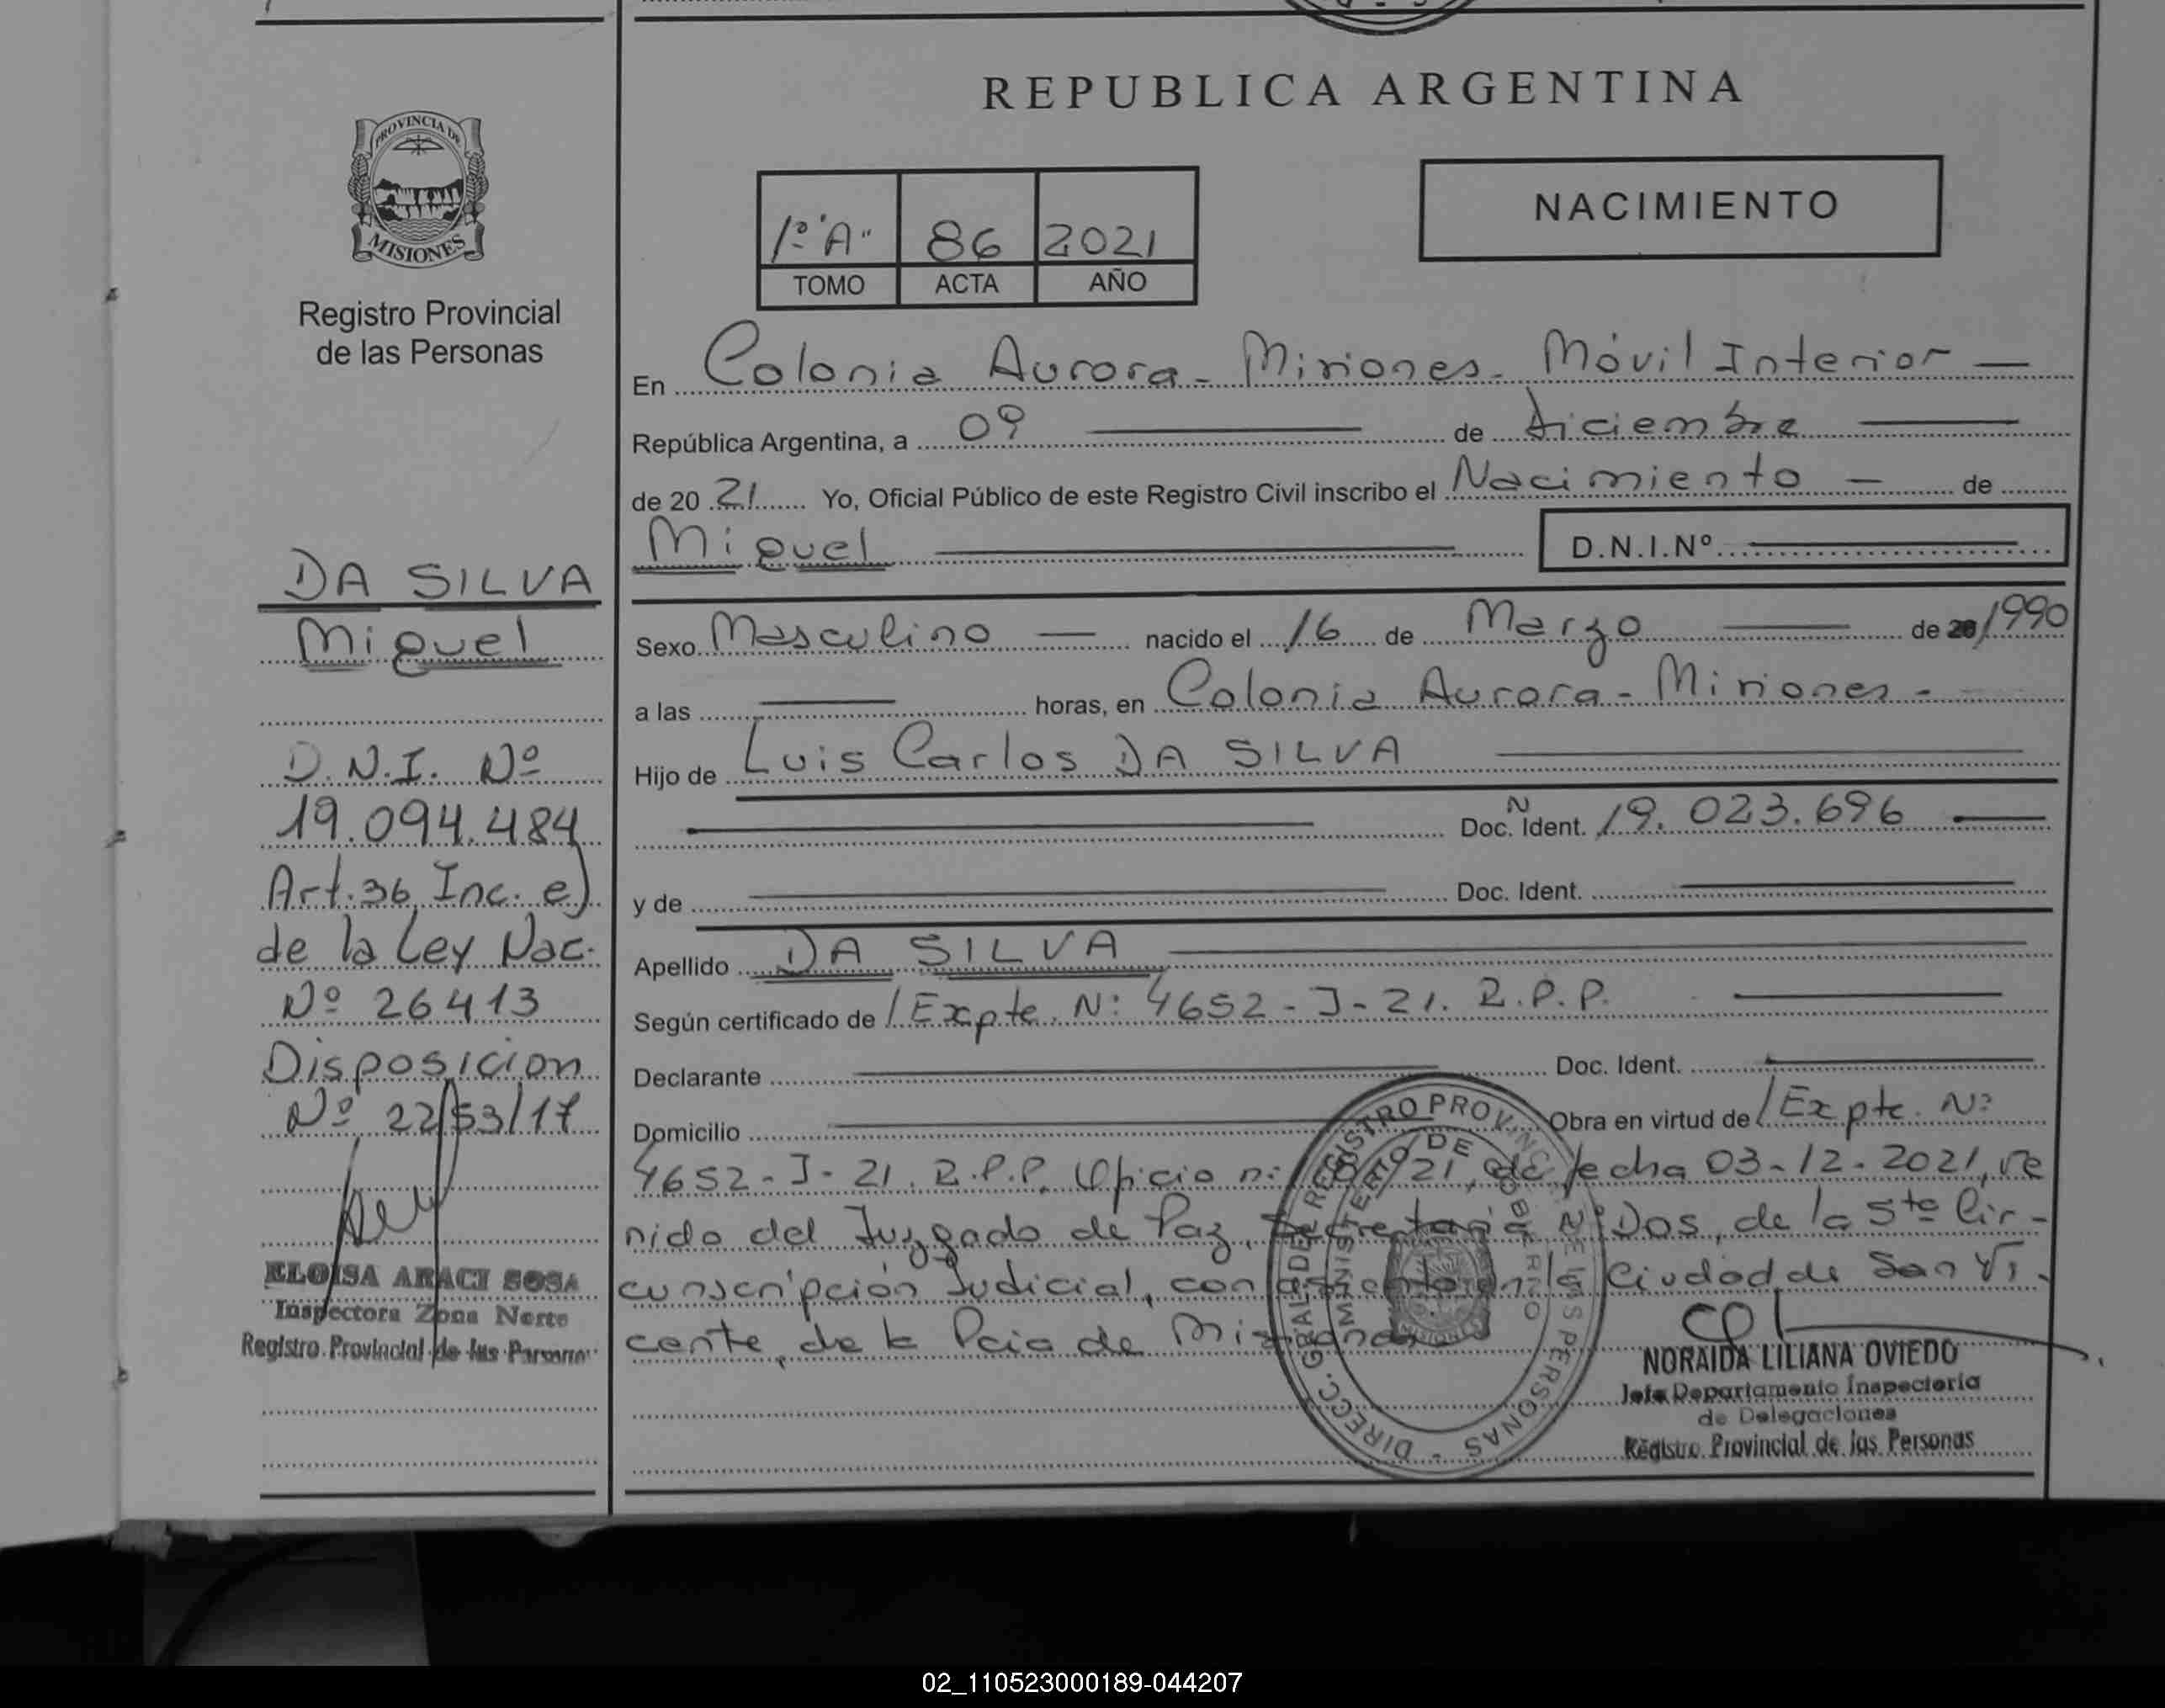 REPUBLICA ARGENTINA
PROVINCIA DE
MISIONES
Registro Provincial
de las Personas
NACIMIENTO
1º "A" 86 2021
TOMO ACTA AÑO
En Colonia Aurora - Misiones - Móvil Interior —
República Argentina, a 09 de diciembre
de 20 21 Yo, Oficial Público de este Registro Civil inscribo el Nacimiento — de
Miguel D.N.I.Nº
Sexo Masculino — nacido el 16 de Marzo de 20/1990
a las horas, en Colonia Aurora - Misiones -
Hijo de Luis Carlos DA SILVA
Doc. Ident. Nº 19.023.696
y de Doc. Ident.
Apellido DA SILVA
Según certificado de /Expte. Nº 4652 - J - 21. R.P.P.
Declarante Doc. Ident.
Domicilio Obra en virtud de /Expte. Nº
4652 - J - 21. R.P.P. Oficio nº /21, de fecha 03-12-2021, ve
nido del Juzgado de Paz, Secretaria Nº Dos, de la 5ta Cir-
cunscripción Judicial, con asiento en la Ciudad de San Vi-
cente, de la Pcia de Misiones
DA SILVA
Miguel
D.N.I. Nº
19.094.484
Art. 36 Inc. e)
de la Ley Nac.
Nº 26413
Disposicion
Nº 2253/17
ELOISA ARACI SOSA
Inspectora Zona Norte
Registro Provincial de las Personas
DIRECC. GRAL DE REGISTRO PROVINCIAL DE LAS PERSONAS -
MINISTERIO DE GOBIERNO
MISIONES
NORAIDA LILIANA OVIEDO
Jefa Departamento Inspectoria
de Delegaciones
Registro Provincial de las Personas
02_110523000189-044207